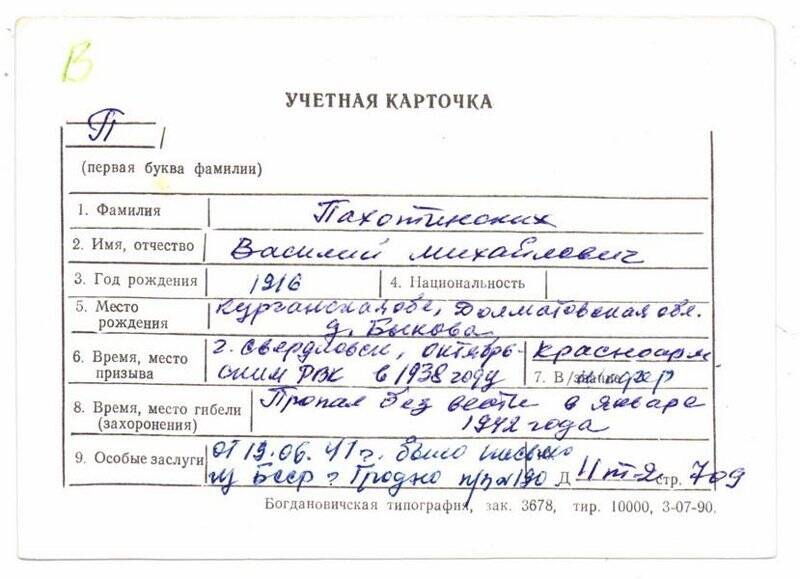 В
УЧЕТНАЯ КАРТОЧКА
П
(первая буква фамилии)
1. Фамилия Пахотинских
2. Имя, отчество Василий Михайлович
3. Год рождения 1916 4. Национальность
5. Место рождения Курганская обл, Долматовская обл.
д. Быкова
6. Время, место призыва г. Свердловск, октябрь-
ским РВК в 1938 году
красноарм
7. В/звание шофер
8. Время, место гибели (захоронения) Пропал без вести в январе
1942 года
9. Особые заслуги от 19.06.41 г. было письмо
из БССР г Гродно п/я 190 Д 11 т-2 стр. 709
Богдановичская типография, зак. 3678, тир. 10000, 3-07-90.